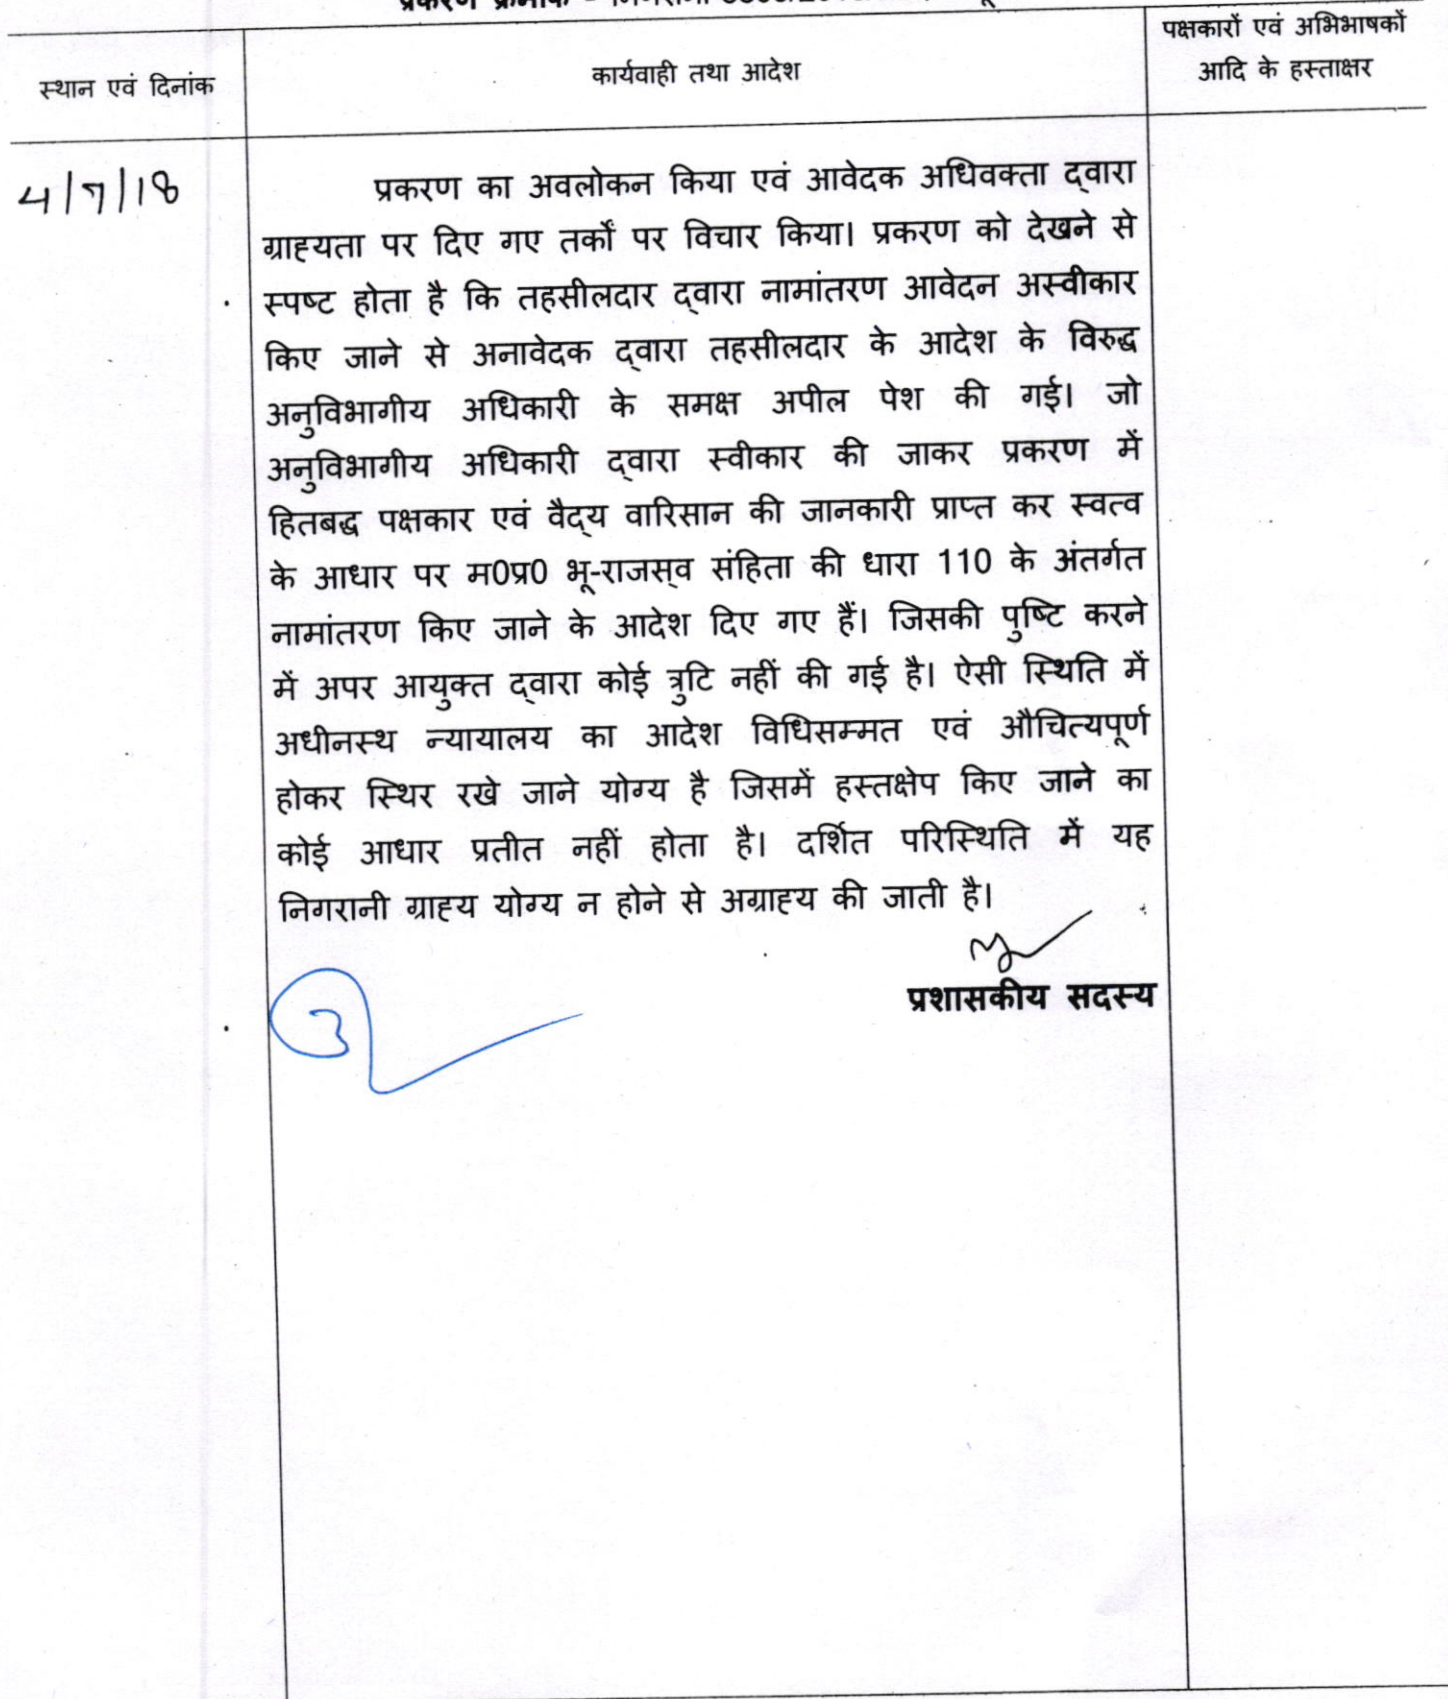 प्रकरण क्रमांक - निगरानी
स्थान एवं दिनांक
कार्यवाही तथा आदेश
पक्षकारों एवं अभिभाषकों
आदि के हस्ताक्षर
4/7/18
प्रकरण का अवलोकन किया एवं आवेदक अधिवक्ता द्वारा
ग्राह्यता पर दिए गए तर्कों पर विचार किया। प्रकरण को देखने से
स्पष्ट होता है कि तहसीलदार द्वारा नामांतरण आवेदन अस्वीकार
किए जाने से अनावेदक द्वारा तहसीलदार के आदेश के विरुद्ध
अनुविभागीय अधिकारी के समक्ष अपील पेश की गई। जो
अनुविभागीय अधिकारी द्वारा स्वीकार की जाकर प्रकरण में
हितबद्ध पक्षकार एवं वैद्य वारिसान की जानकारी प्राप्त कर स्वत्व
के आधार पर म0प्र0 भू-राजस्व संहिता की धारा 110 के अंतर्गत
नामांतरण किए जाने के आदेश दिए गए हैं। जिसकी पुष्टि करने
में अपर आयुक्त द्वारा कोई त्रुटि नहीं की गई है। ऐसी स्थिति में
अधीनस्थ न्यायालय का आदेश विधिसम्मत एवं औचित्यपूर्ण
होकर स्थिर रखे जाने योग्य है जिसमें हस्तक्षेप किए जाने का
कोई आधार प्रतीत नहीं होता है। दर्शित परिस्थिति में यह
निगरानी ग्राह्य योग्य न होने से अग्राह्य की जाती है।
प्रशासकीय सदस्य